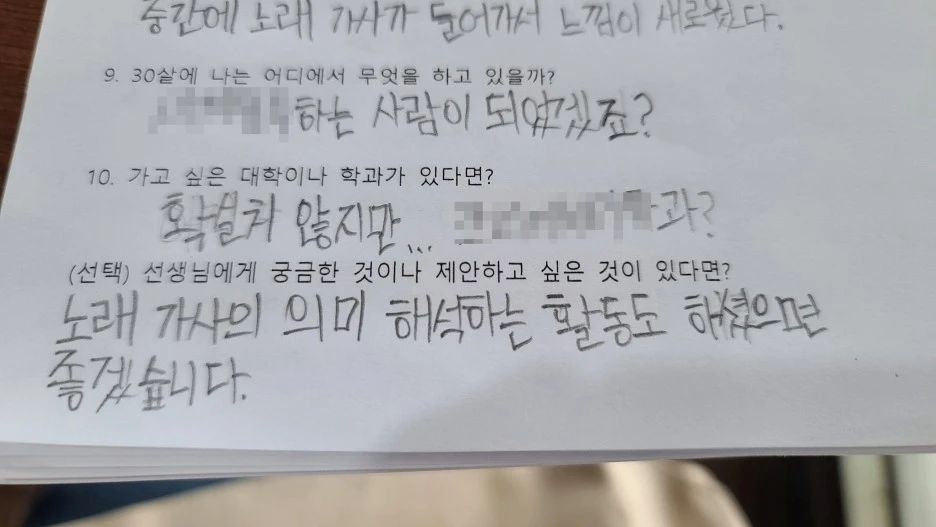 중간에 노래 가사가 들어가서 느낌이 새로웠다.
9. 30살에 나는 어디에서 무엇을 하고 있을까?
하는 사람이 되었겠죠?
10. 가고 싶은 대학이나 학과가 있다면?
확실치 않지만... 과?
(선택) 선생님에게 궁금한 것이나 제안하고 싶은 것이 있다면?
노래 가사의 의미 해석하는 활동도 하셨으면
좋겠습니다.